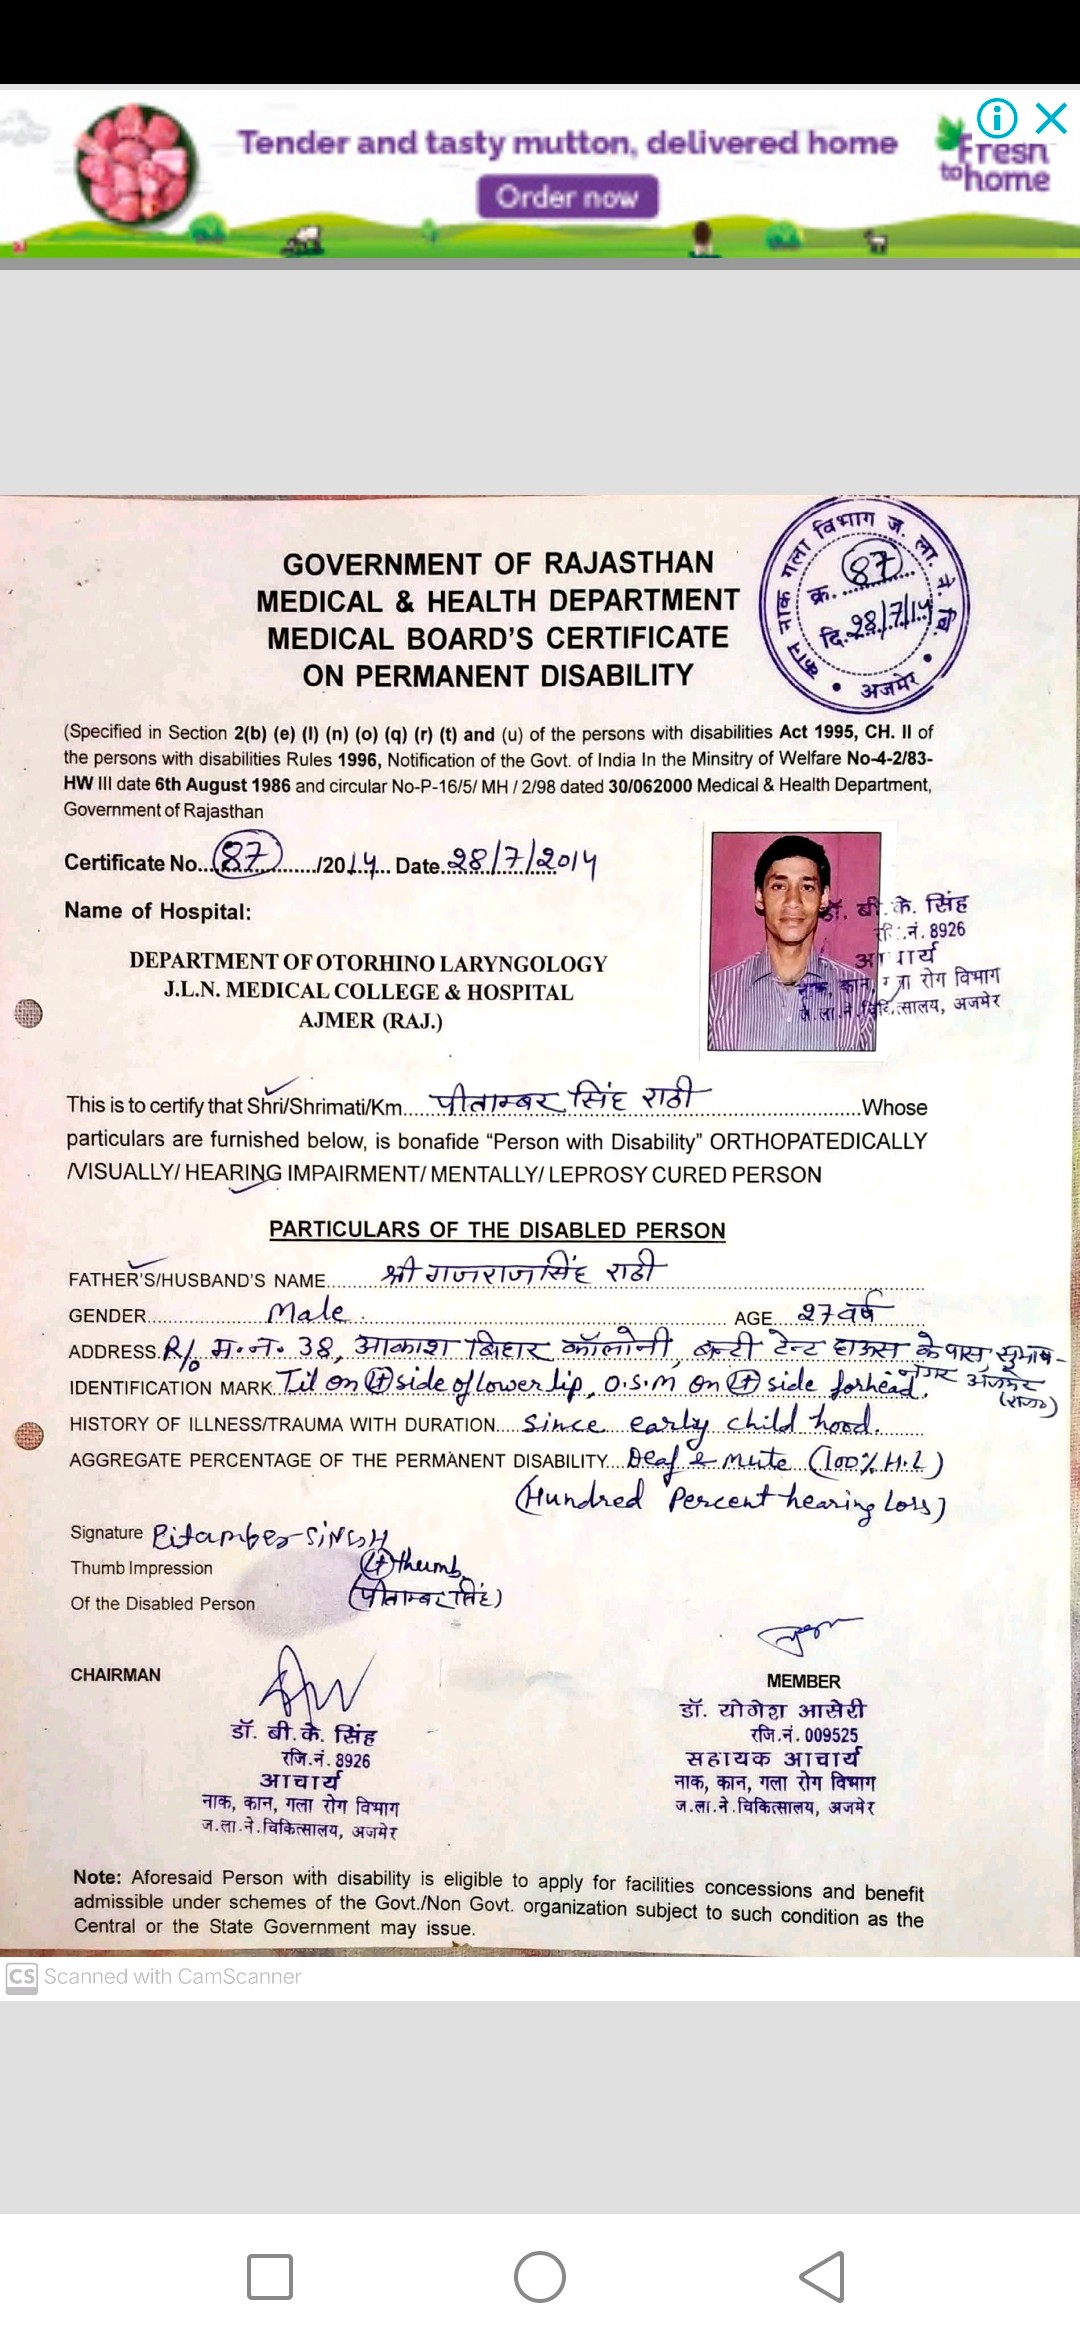 Tender and tasty mutton, delivered home
Order now
Fresh
to home
कान नाक गला विभाग ज. ला. ने. चि. अजमेर
क्र. 87
दि. 28/7/14
GOVERNMENT OF RAJASTHAN
MEDICAL & HEALTH DEPARTMENT
MEDICAL BOARD'S CERTIFICATE
ON PERMANENT DISABILITY
(Specified in Section 2(b) (e) (l) (n) (o) (q) (r) (t) and (u) of the persons with disabilities Act 1995, CH. II of
the persons with disabilities Rules 1996, Notification of the Govt. of India In the Minsitry of Welfare No-4-2/83-
HW III date 6th August 1986 and circular No-P-16/5/ MH / 2/98 dated 30/062000 Medical & Health Department,
Government of Rajasthan
Certificate No. 87 /2014 Date 28/7/2014
Name of Hospital:
DEPARTMENT OF OTORHINO LARYNGOLOGY
J.L.N. MEDICAL COLLEGE & HOSPITAL
AJMER (RAJ.)
डॉ. बी. के. सिंह
रजि.नं. 8926
आचार्य
नाक, कान, गला रोग विभाग
ज.ला.ने.चिकित्सालय, अजमेर
This is to certify that Shri/Shrimati/Km. पीताम्बर सिंह राठी Whose
particulars are furnished below, is bonafide "Person with Disability" ORTHOPATEDICALLY
/VISUALLY/ HEARING IMPAIRMENT/ MENTALLY/ LEPROSY CURED PERSON
PARTICULARS OF THE DISABLED PERSON
FATHER'S/HUSBAND'S NAME श्री गजराज सिंह राठी
GENDER Male AGE 27 वर्ष
ADDRESS R/o म.न. 38, आकाश बिहार कॉलोनी, बन्टी टेन्ट हाऊस के पास, सुभाष-
नगर अजमेर
(राज०)
IDENTIFICATION MARK Til on Lt side of lower lip, O.S.M on Lt side forhead.
HISTORY OF ILLNESS/TRAUMA WITH DURATION Since early child hood.
AGGREGATE PERCENTAGE OF THE PERMANENT DISABILITY Deaf & Mute (100% H.L)
(Hundred Percent hearing Loss)
Signature Pitamber SiNGH
Thumb Impression Lt thumb
Of the Disabled Person (पीताम्बर सिंह)
CHAIRMAN
डॉ. बी. के. सिंह
रजि.नं. 8926
आचार्य
नाक, कान, गला रोग विभाग
ज.ला.ने.चिकित्सालय, अजमेर
MEMBER
डॉ. योगेश आसेरी
रजि.नं. 009525
सहायक आचार्य
नाक, कान, गला रोग विभाग
ज.ला.ने.चिकित्सालय, अजमेर
Note: Aforesaid Person with disability is eligible to apply for facilities concessions and benefit
admissible under schemes of the Govt./Non Govt. organization subject to such condition as the
Central or the State Government may issue.
CS Scanned with CamScanner